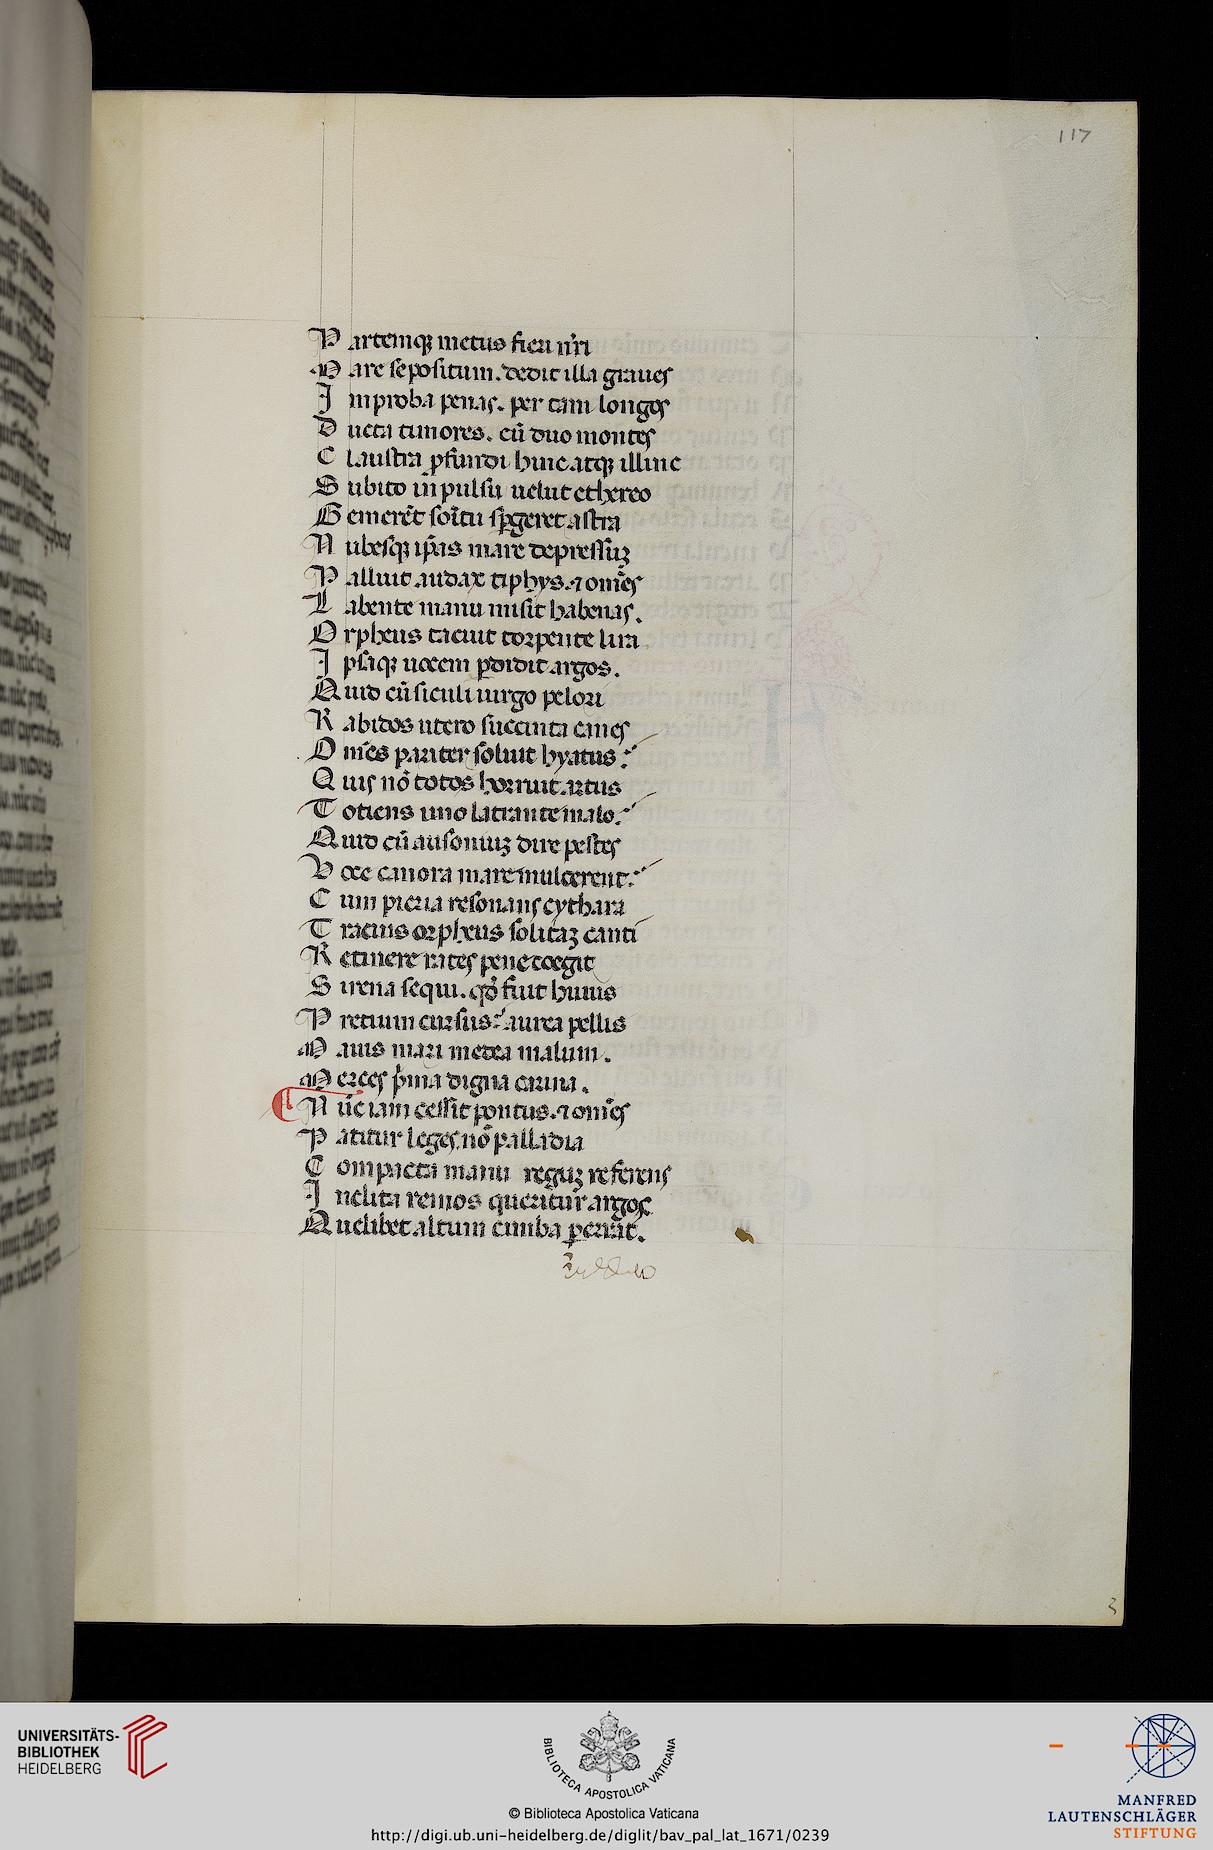 117
P artemq metus fieri nr̄i
M are sepositum. dedit illa graues
I mproba penas. per tam longos
D ucta timores. cū duo montes
C laustra ꝓfundi hinc atqꝫ illinc
S ubito inpulsu uelut ethereo
G emerēt soītu spgeret astra
N ubesqꝫ ip̄as mare depressuꝫ
P alluit audax tiphys. ⁊ om̄es
L abente manu misit habenas.
O rpheus tacuit torpente lira
I psaqꝫ uocem ꝑdidit argos.
Q uid cū siculi uirgo pelori
R abidos utero succinta canes
O m̄es pariter soluit hyatus
Q uis nō totos horruit artus
T otiens uno latrante malo
Q uid cū ausoniuꝫ dire pestes
V oce canora mare mulcerent
C um pieria resonans cythara
T racius orpheus solitaꝫ canti
R etinere rates pene coegit
S irena sequi. qd̄ fuit huius
P retium cursus aurea pellis
M aius mari medea malum.
M erces pͥma digna carina.
N ūc iam cessit pontus. ⁊ om̄es
P atitur leges. nō palladia
C ompacta manu reguꝫ referens
I nclita remos queritur argos
Q uelibet altum cimba ꝑerrat.
3
UNIVERSITÄTS-
BIBLIOTHEK
HEIDELBERG
BIBLIOTECA APOSTOLICA VATICANA
© Biblioteca Apostolica Vaticana
http://digi.ub.uni-heidelberg.de/diglit/bav_pal_lat_1671/0239
MANFRED
LAUTENSCHLÄGER
STIFTUNG